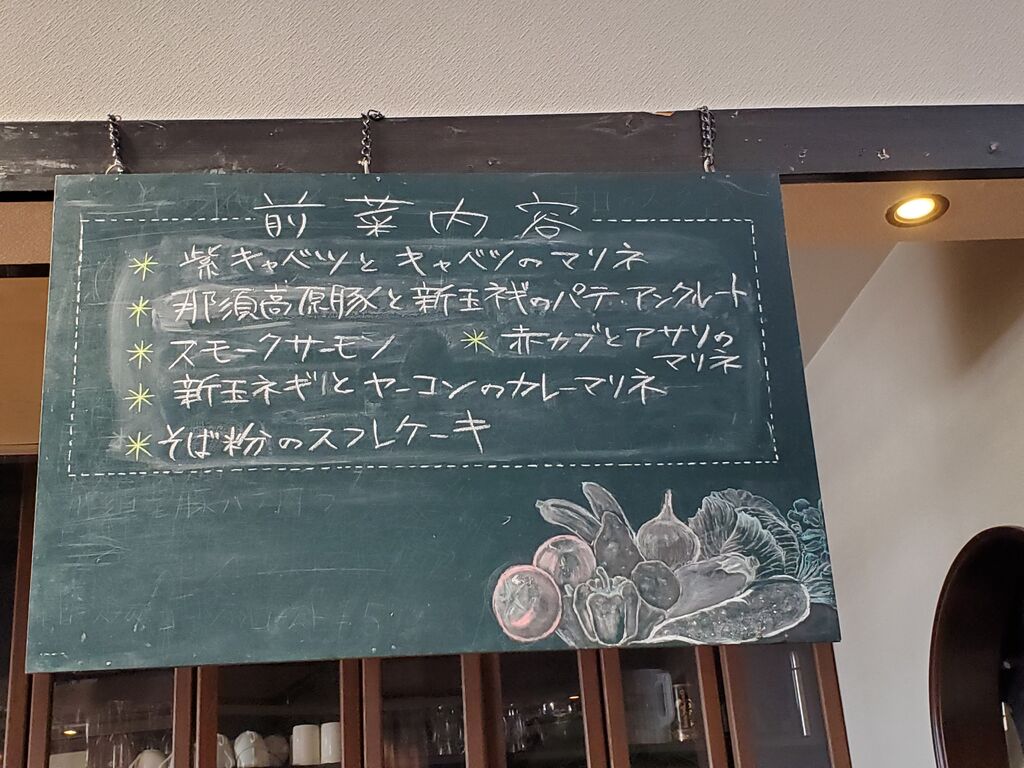 前菜内容
* 紫キャベツとキャベツのマリネ
* 那須高原豚と新玉ネギのパテ・アンクルート
* スモークサーモン * 赤カブとアサリの
マリネ
* 新玉ネギとヤーコンのカレーマリネ
* そば粉のスフレケーキ